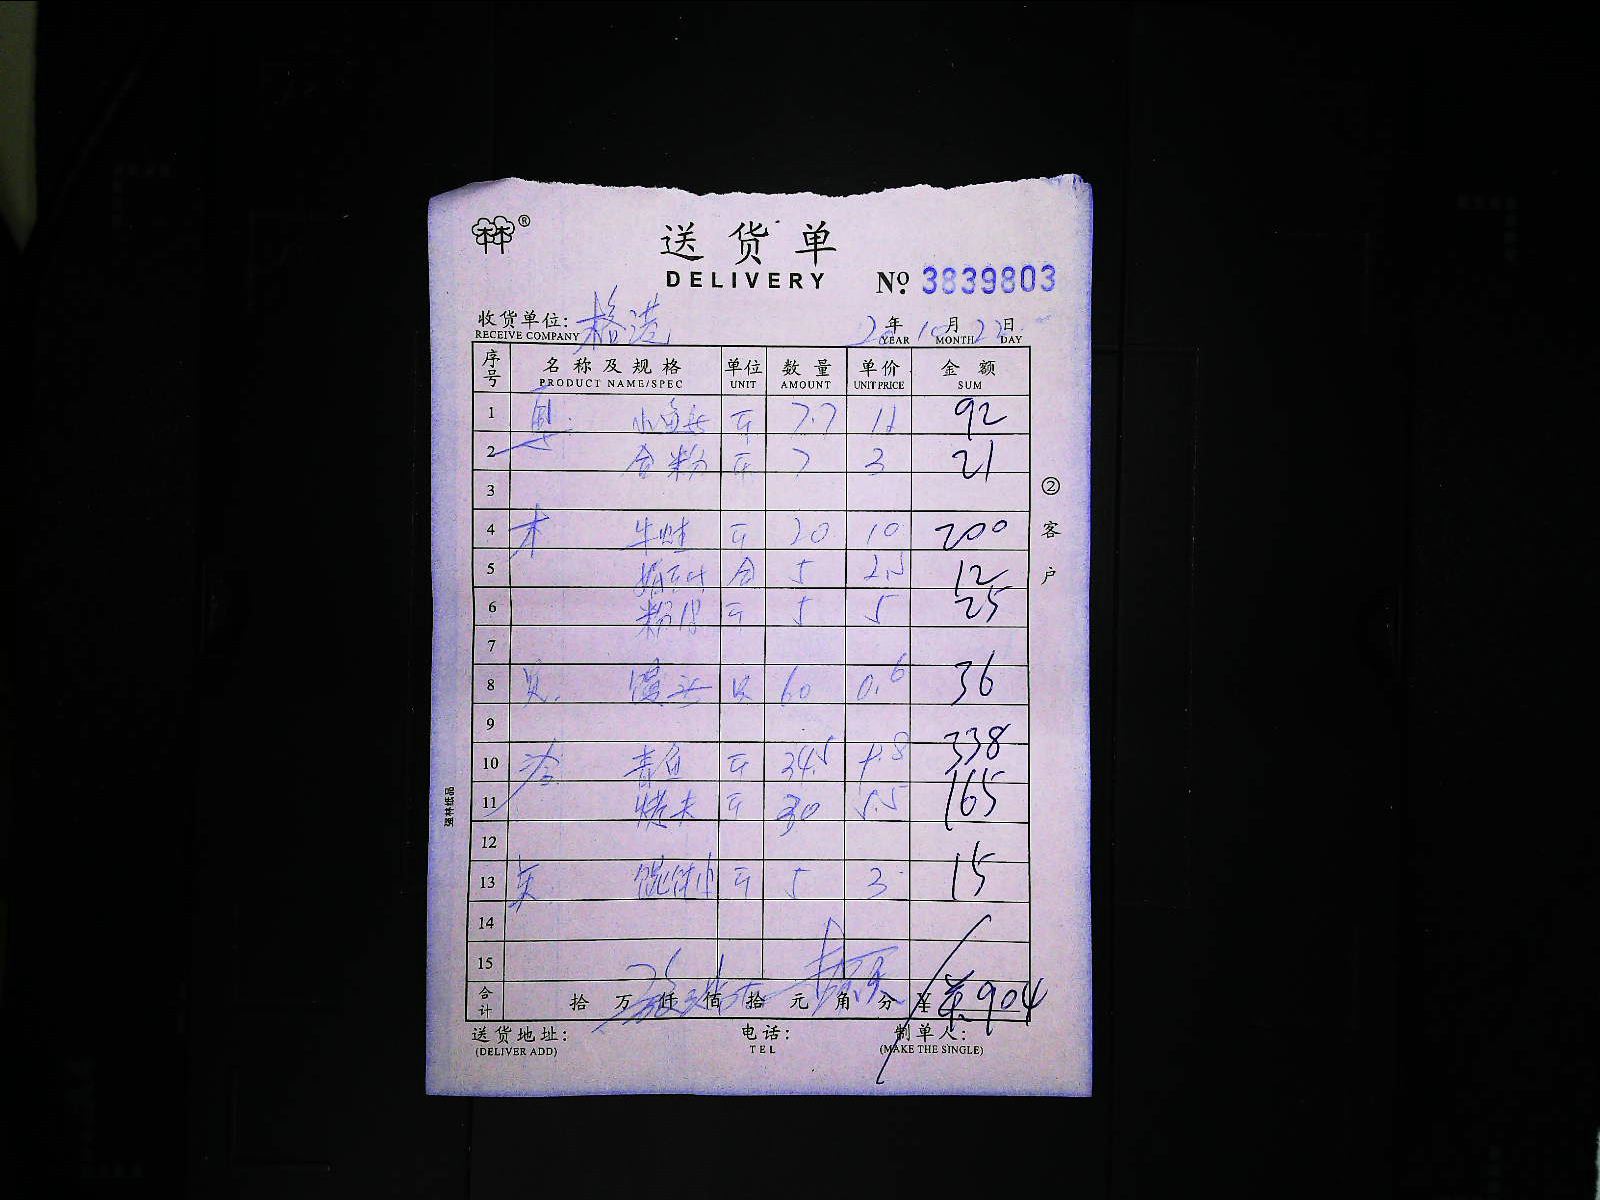 ®
送货单
DELIVERY № 3839803
收货单位: 格港 20年10月22日
RECEIVE COMPANY YEAR MONTH DAY
序号 名称及规格 单位 数量 单价 金额
PRODUCT NAME/SPEC UNIT AMOUNT UNIT PRICE SUM
1 小鱼头 斤 7.7 12 92
2 粉 斤 7 3 21
3
4 木 牛蛙 斤 20 10 200
5 5 2.5 12
6 粉皮 斤 5 5 25
7
8 见. 馒头 只 60 0.6 36
9
10 冷 青鱼 斤 34.5 9.8 338
11 烤夫 斤 30 5.5 165
12
13 斤 5 3 15
14
15
合计 拾 万 仟 佰 拾 元 角 分 ¥ 904
送货地址: 电话: 制单人:
(DELIVER ADD) TEL (MAKE THE SINGLE)
②客户
强林纸品